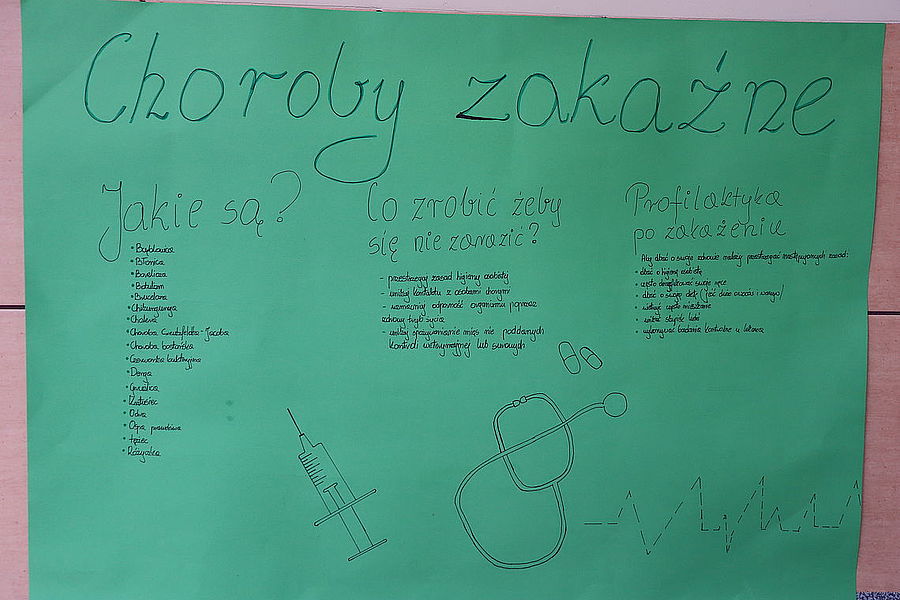 Choroby zakaźne
Jakie są?
• Bąblowica
• Błonica
• Borelioza
• Botulizm
• Bruceloza
• Chikungunya
• Cholera
• Choroba Creutzfeldta-Jacoba
• Choroba bostońska
• Czerwonka bakteryjna
• Denga
• Gruźlica
• Krztusiec
• Odra
• Ospa prawdziwa
• tężec
• Różyczka
Co zrobić żeby
się nie zarazić?
- przestrzegaj zasad higieny osobistej
- unikaj kontaktu z osobami chorymi
- wzmacniaj odporność organizmu poprzez
zdrowy tryb życia
- unikaj spożywania mięs nie poddanych
kontroli weterynaryjnej lub surowych
Profilaktyka
po zakażeniu
Aby dbać o swoje zdrowie należy przestrzegać następujących zasad:
• dbać o higienę osobistą
• często dezynfekować swoje ręce
• dbać o swoją dietę (jeść dużo owoców i warzyw)
• wietrzyć często mieszkanie
• unikać skupisk ludzi
• wykonywać badania kontrolne u lekarza